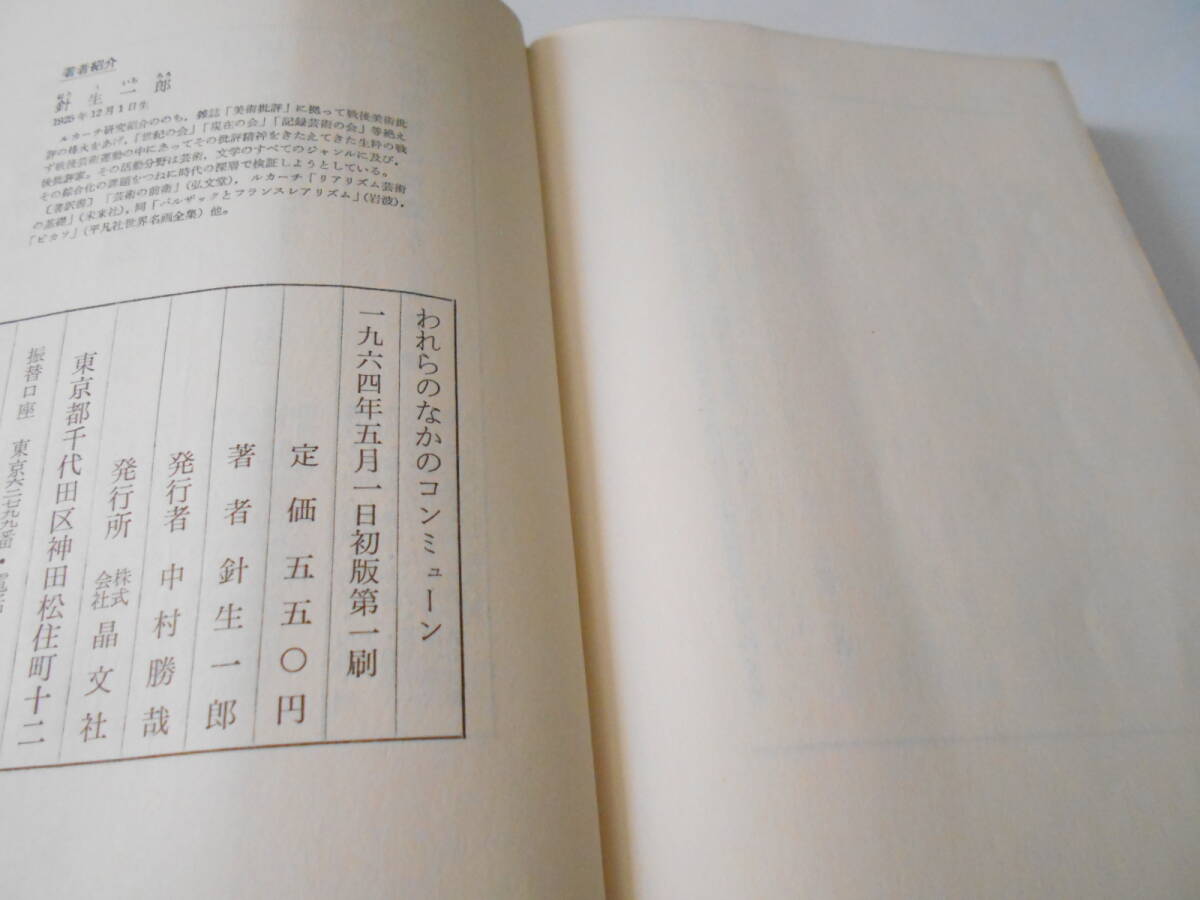 著者紹介
はり う いち ろう
針生一郎
1925年12月1日生
ルカーチ研究紹介ののち，雑誌「美術批評」に拠って戦後美術批
評の烽火をあげ，「世紀の会」「現在の会」「記録芸術の会」等絶え
ず戦後芸術運動の中にあってその批評精神をきたえてきた生粋の戦
後批評家。その活動分野は芸術，文学のすべてのジャンルに及び，
その綜合化の課題をつねに時代の深層で検証しようとしている。
〔著訳書〕「芸術の前衛」（弘文堂），ルカーチ「リアリズム芸術
の基礎」（未来社），同「バルザックとフランスレアリズム」（岩波），
「ピカソ」（平凡社世界名画全集）他。
われらのなかのコンミューン
一九六四年五月一日初版第一刷
定価五五〇円
著者針生一郎
発行者中村勝哉
発行所 株式会社晶文社
東京都千代田区神田松住町十二
振替口座 東京六二七九九番・電話